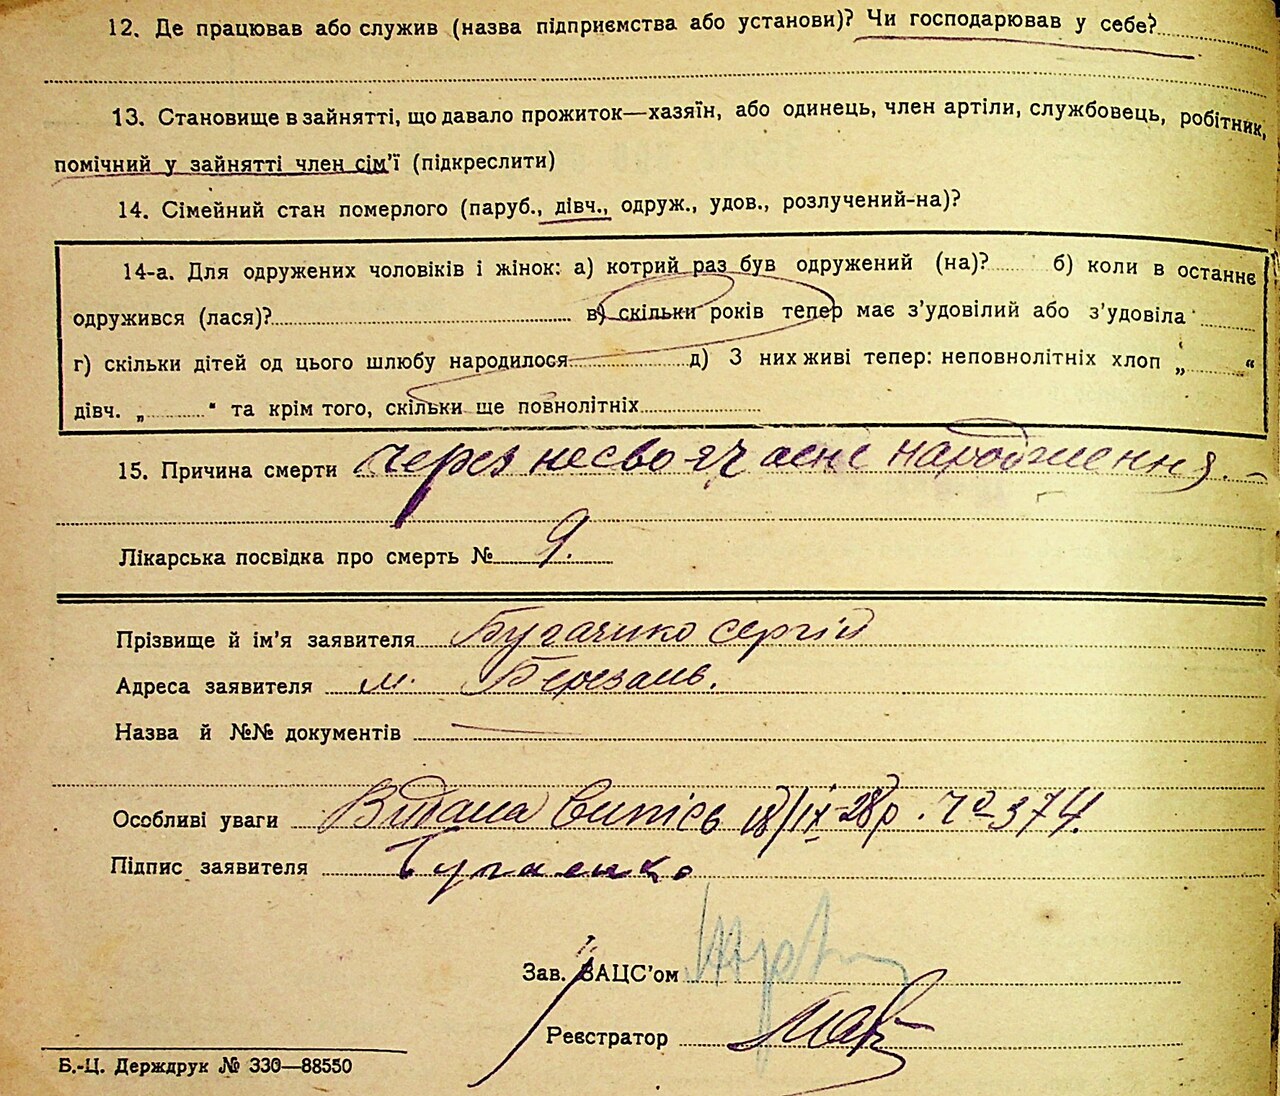 12. Де працював або служив (назва підприємства або установи)? Чи господарював у себе?
13. Становище в зайнятті, що давало прожиток—хазяїн, або одинець, член артіли, службовець, робітник,
помічний у зайнятті член сім'ї (підкреслити)
14. Сімейний стан померлого (паруб., дівч., одруж., удов., розлучений-на)?
14-а. Для одружених чоловіків і жінок: а) котрий раз був одружений (на)? б) коли в останнє
одружився (лася)? в) скільки років тепер має з'удовілий або з'удовіла
г) скільки дітей од цього шлюбу народилося д) З них живі тепер: неповнолітніх хлоп „ “
дівч. „ “ та крім того, скільки ще повнолітніх
15. Причина смерти через несвоячасне народження.
Лікарська посвідка про смерть № 9.
Прізвище й ім'я заявителя Сергій
Адреса заявителя м. Березань.
Назва й №№ документів
Особливі уваги Видана випись 18/ІХ-28р. Чо 374.
Підпис заявителя
Зав. ЗАЦС'ом
Реєстратор
Б.-Ц. Держдрук № 330—88550